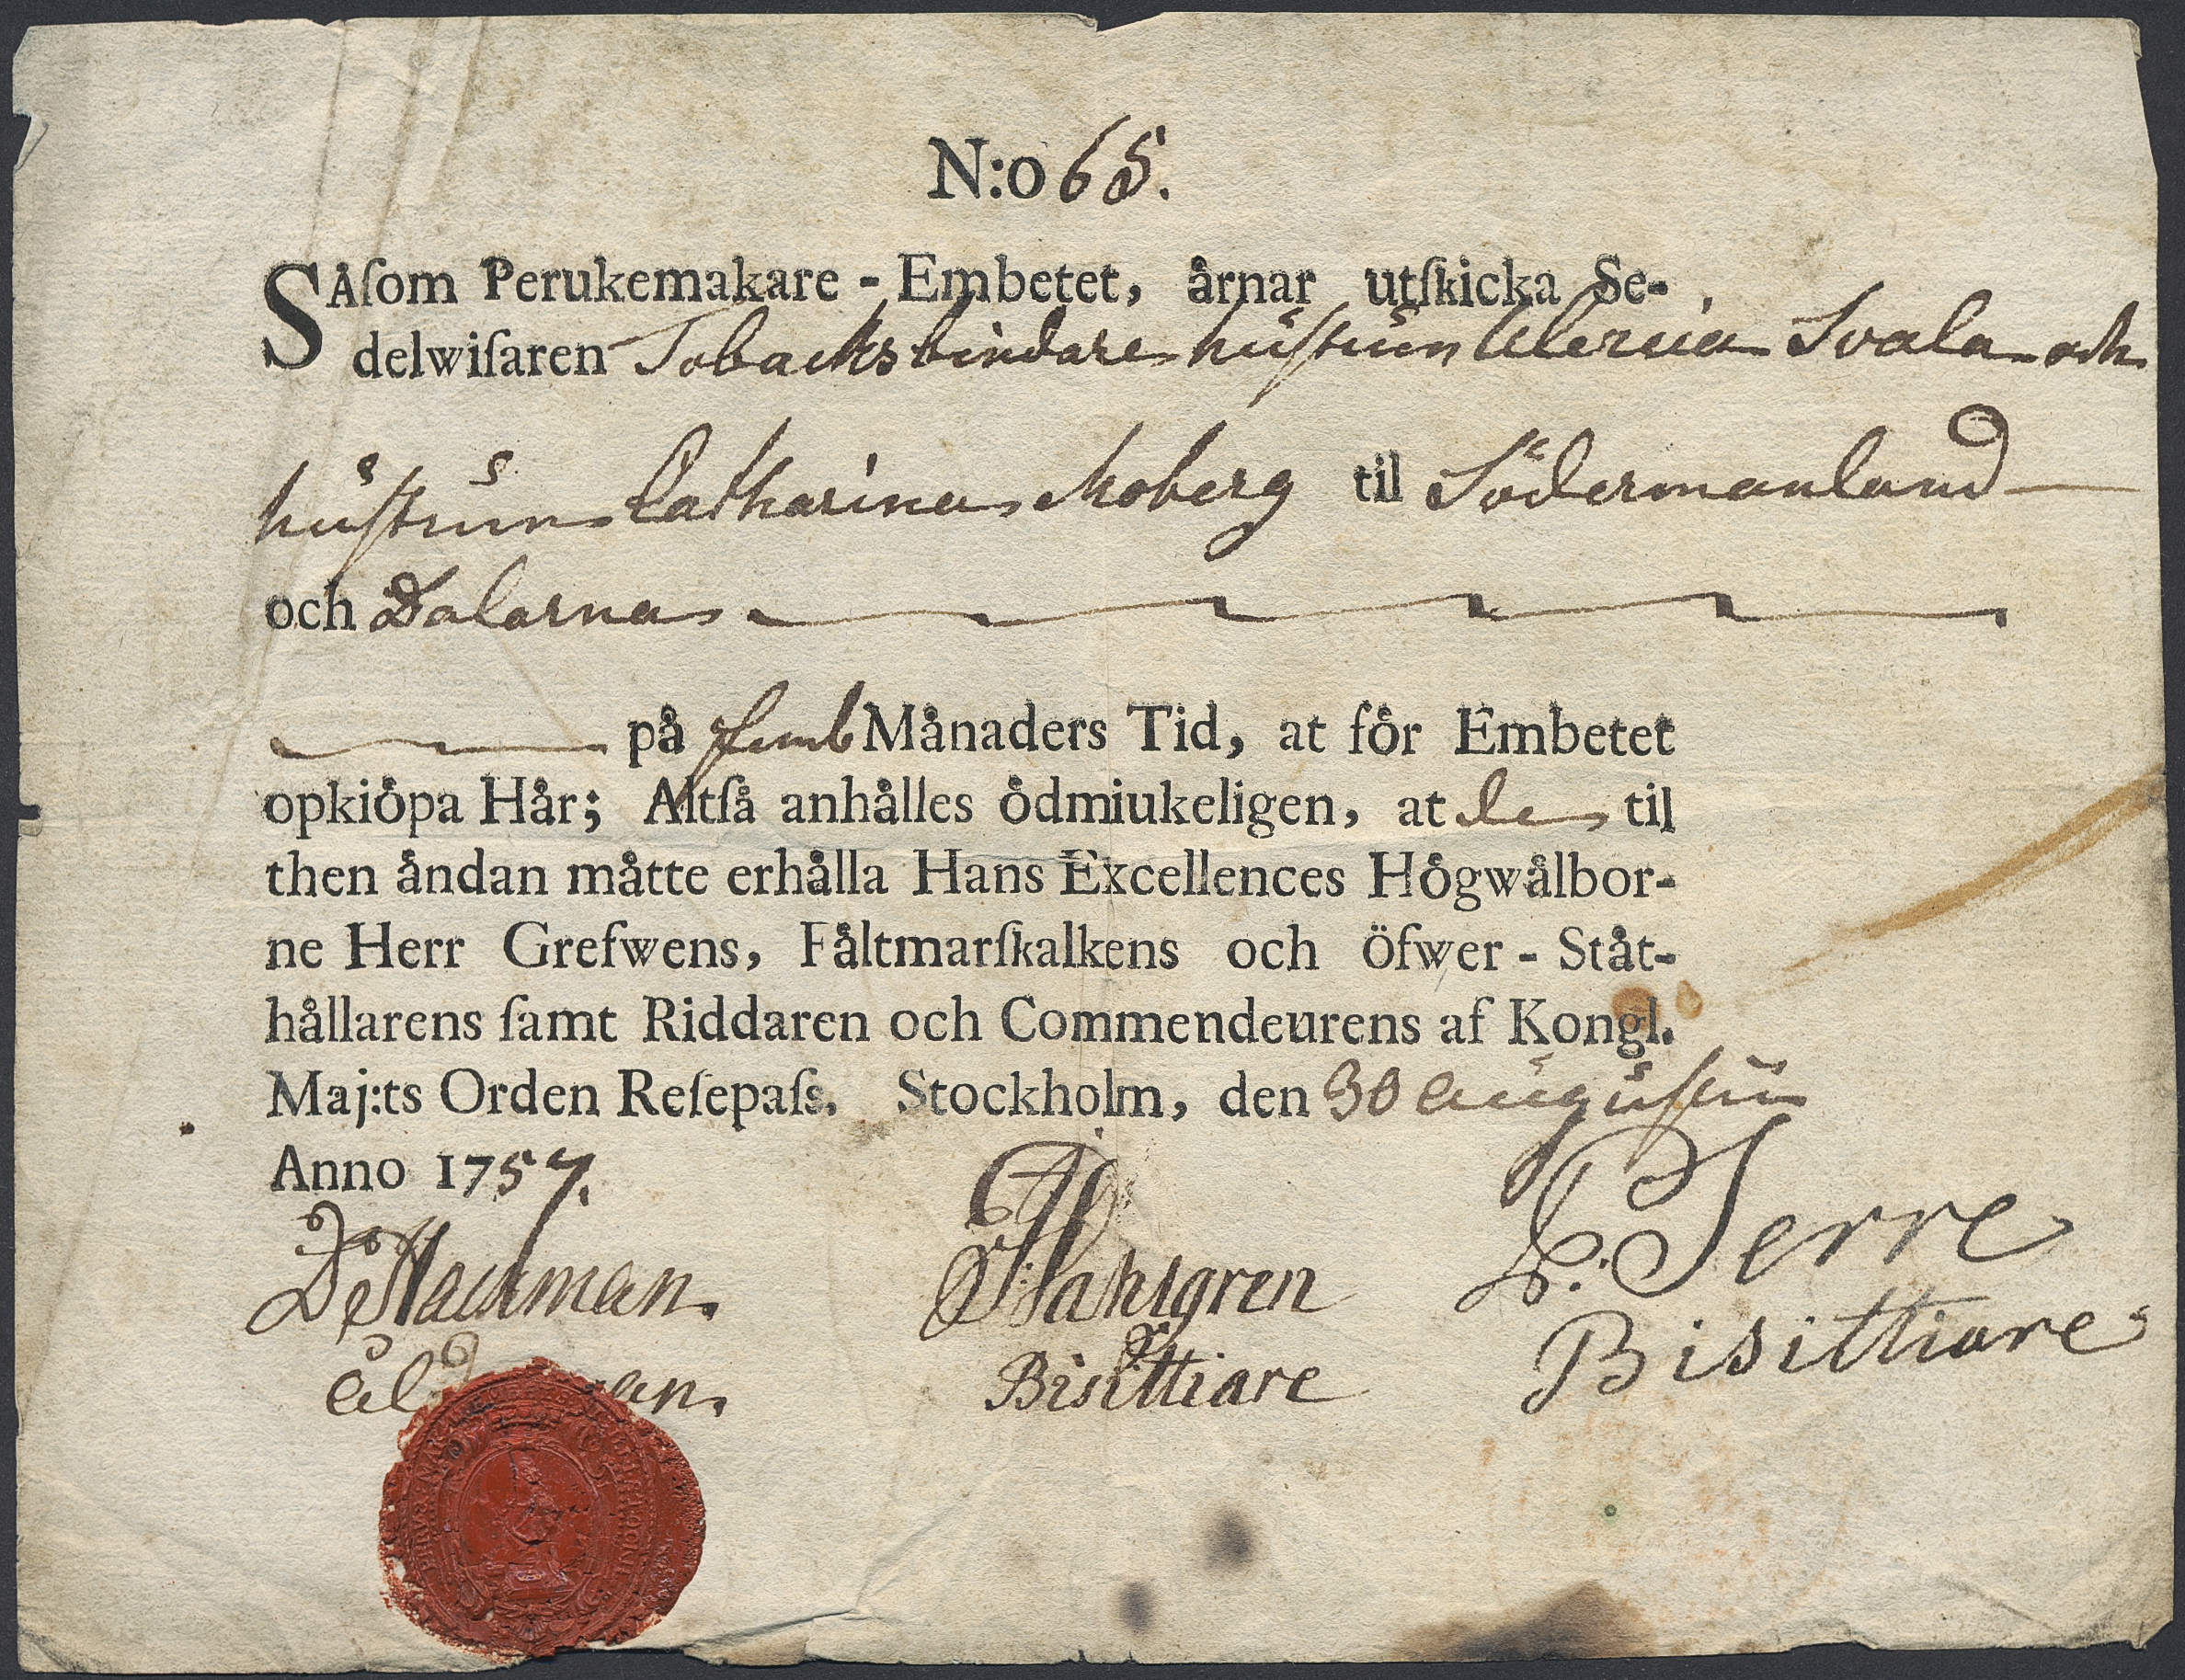 N:o 65.
SÅſom Perukemakare - Embetet, årnar utſkicka Se-
delwiſaren Tobacksbindare huſtrun Maria Svala och
huſtrun Catharina Moberg til Södermanland
och Dalarna
på femb Månaders Tid, at för Embetet
opkiöpa Hår; Altſå anhålles ödmiukeligen, at de til
then åndan måtte erhålla Hans Excellences Högwålbor-
ne Herr Grefwens, Fåltmarſkalkens och Öfwer - Ståt-
hållarens ſamt Riddaren och Commendeurens af Kongl.
Maj:ts Orden Reſepaſs. Stockholm, den 30 Auguſti
Anno 1757.
Hackman. Dahlgren Serre
Ålderman. Bisittiare Bisittiare